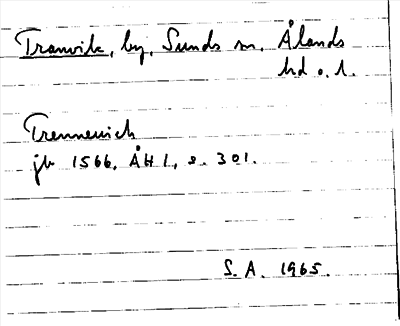 Tranvik, by, Sunds sn, Ålands
hd o. l.
Trennewich
jb 1566, ÅH 1, s. 301.
S. A. 1965.